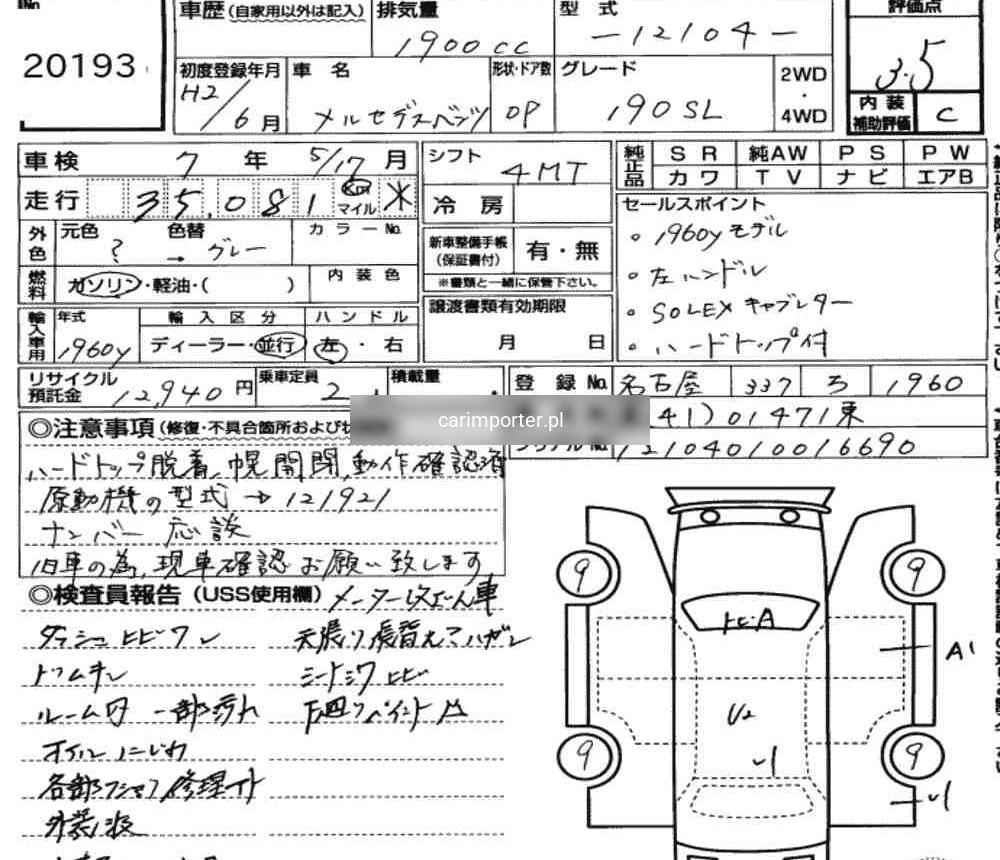 No.
20193
車歴 (自家用以外は記入)
排気量
1900cc
型 式
-12104-
評価点
3.5
初度登録年月
H2/6月
車 名
メルセデスベンツ
形状・ドア数
OP
グレード
190SL
2WD
・
4WD
内 装
補助評価
C
車検 7 年 5/17 月
走行 35,081 Km マイル
シフト
4MT
純正品
S R 純AW P S P W
カワ T V ナビ エアB
冷 房
外色
元色 ? 色替 → グレー
カラーNo.
新車整備手帳
(保証書付)
有・無
※書類と一緒に保管下さい。
燃料
ガソリン・軽油・( )
内 装 色
セールスポイント
。1960yモデル
。左ハンドル
。SOLEXキャブレター
。ハードトップ付
輸入車用
年式
1960y
輸 入 区 分
ディーラー・並行
ハ ン ド ル
左・右
譲渡書類有効期限
月 日
リサイクル
預託金
12,940円
乗車定員
2
積載量
登 録 No.
名古屋 337 ろ 1960
(41)01471東
シリアルNo.
12104010016690
carimporter.pl
◎注意事項(修復・不具合箇所および
ハードトップ脱着、幌開閉、動作確認済
原動機の型式→121921
ナンバー応談
旧車の為、現車確認お願い致します
◎検査員報告(USS使用欄)
メーター改ざん車
ダッシュヒビワレ
天張り張替えてハガレ
シートシワヒビ
ルーム内 一部汚れ
下廻りペイント
オイルにじみ
9
9
トビA
A1
U2
9
9